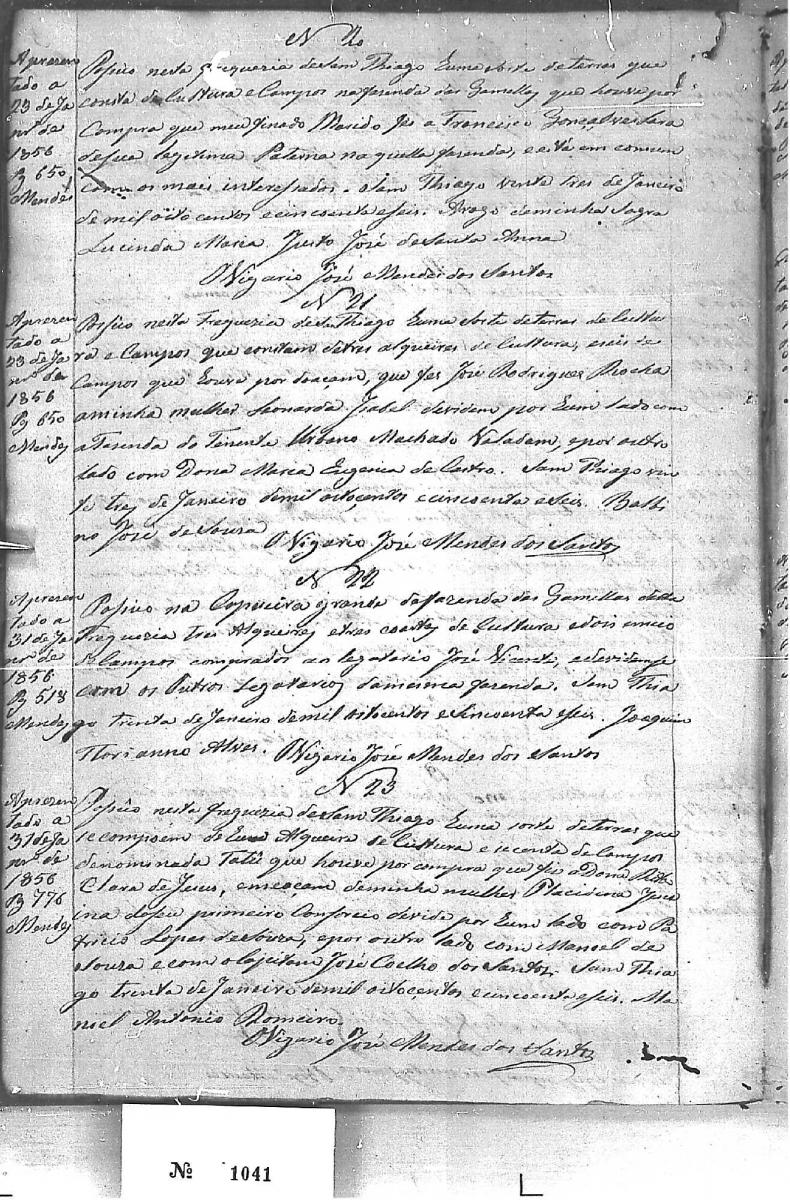 N 20
Aprezen
tado a
23 de Ja
nrº de
1856
Pg 650
Mendes
Posuo nesta Freguezia de Sam Thiago huma sorte de terras que
consta de Cultura e Campos na fazenda das Gamellas que houve por
Compra que meu finado Marido fes a Francisco Gonçalves Lara
de sua legitima Paterna na quella fazenda, e está em comum
com os mais interessados. Sam Thiago vinte tres de Janeiro
de mil oito centos e cincoenta e seis. Arogo de minha Sogra
Lucinda Maria Justo José de Santa Anna
O Vigario José Mendes dos Santos
N 21
Aprezen
tado a
23 de Ja
nrº de
1856
Pg 650
Mendes
Posuo nesta Freguezia de Sam Thiago huma sorte de terras de Cultu
ra e Campos que constam de tres alqueires de Cultura, e seis de
Campos que houve por doaçam, que fes José Rodrigues Rocha
aminha mulher Leonarda Isabel devidem por hum lado com
a Fasenda do Tenente Urbano Machado Valadam, e por outro
lado com Dona Maria Eugenia de Castro. Sam Thiago vin
te tres de Janeiro de mil oitocentos e cincoenta e seis. Balbi
no José de Souza
O Vigario José Mendes dos Santos
N 22
Aprezen
tado a
31 de Ja
nrº de
1856
Pg 518
Mendes
Posuo na Capueira grande da fazenda das Gamellas desta
Freguezia tres Alqueires e tres coartas de Cultura e dois emeio
de Campos comprados ao legatario José Vicente, e devidemse
com os Outros Legatarios damesma fazenda. Sam Thia
go trinta de Janeiro de mil oitocentos e Sincoenta e seis. Joaquim
Florianno Alves. O Vigario José Mendes dos Santos
N 23
Aprezen
tado a
31 de Ja
nrº de
1856
Pg 776
Mendes
Posuo nesta freguezia de Sam Thiago huma sorte de terras que
se compoem de hum Alqueire de Cultura e secenta de Campos
denominada Tatú que houve por compra que fis a Dona Rita
Clara de Jesus, emeaçam deminha mulher Placidina
ina doseu primeiro Consorcio devide por hum lado com Pa
tricio Lopes de Souza, e por outro lado com Manoel de
Souza e com o Capitam José Coelho dos Santos. Sam Thia
go trinta de Janeiro de mil oitocentos e cincoenta e seis. Ma
noel Antonio Romeiro.
O Vigario José Mendes dos Santos
Nº 1041